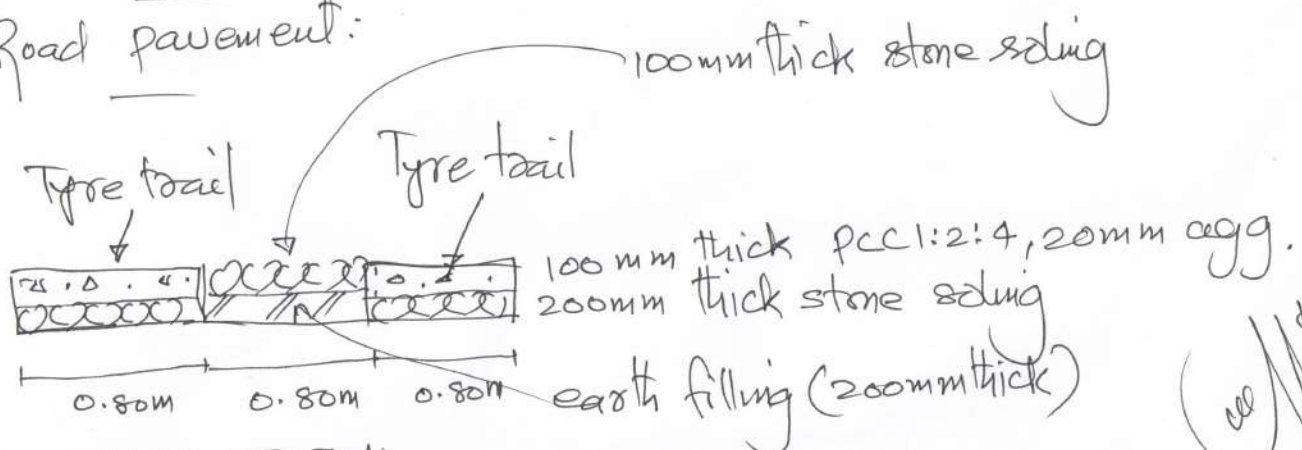 Road pavement:
100mm thick stone soling
Tyre trail
Tyre trail
100 mm thick PCC1:2:4, 20mm agg.
200mm thick stone soling
0.80m 0.80m 0.80m
earth filling (200mm thick)